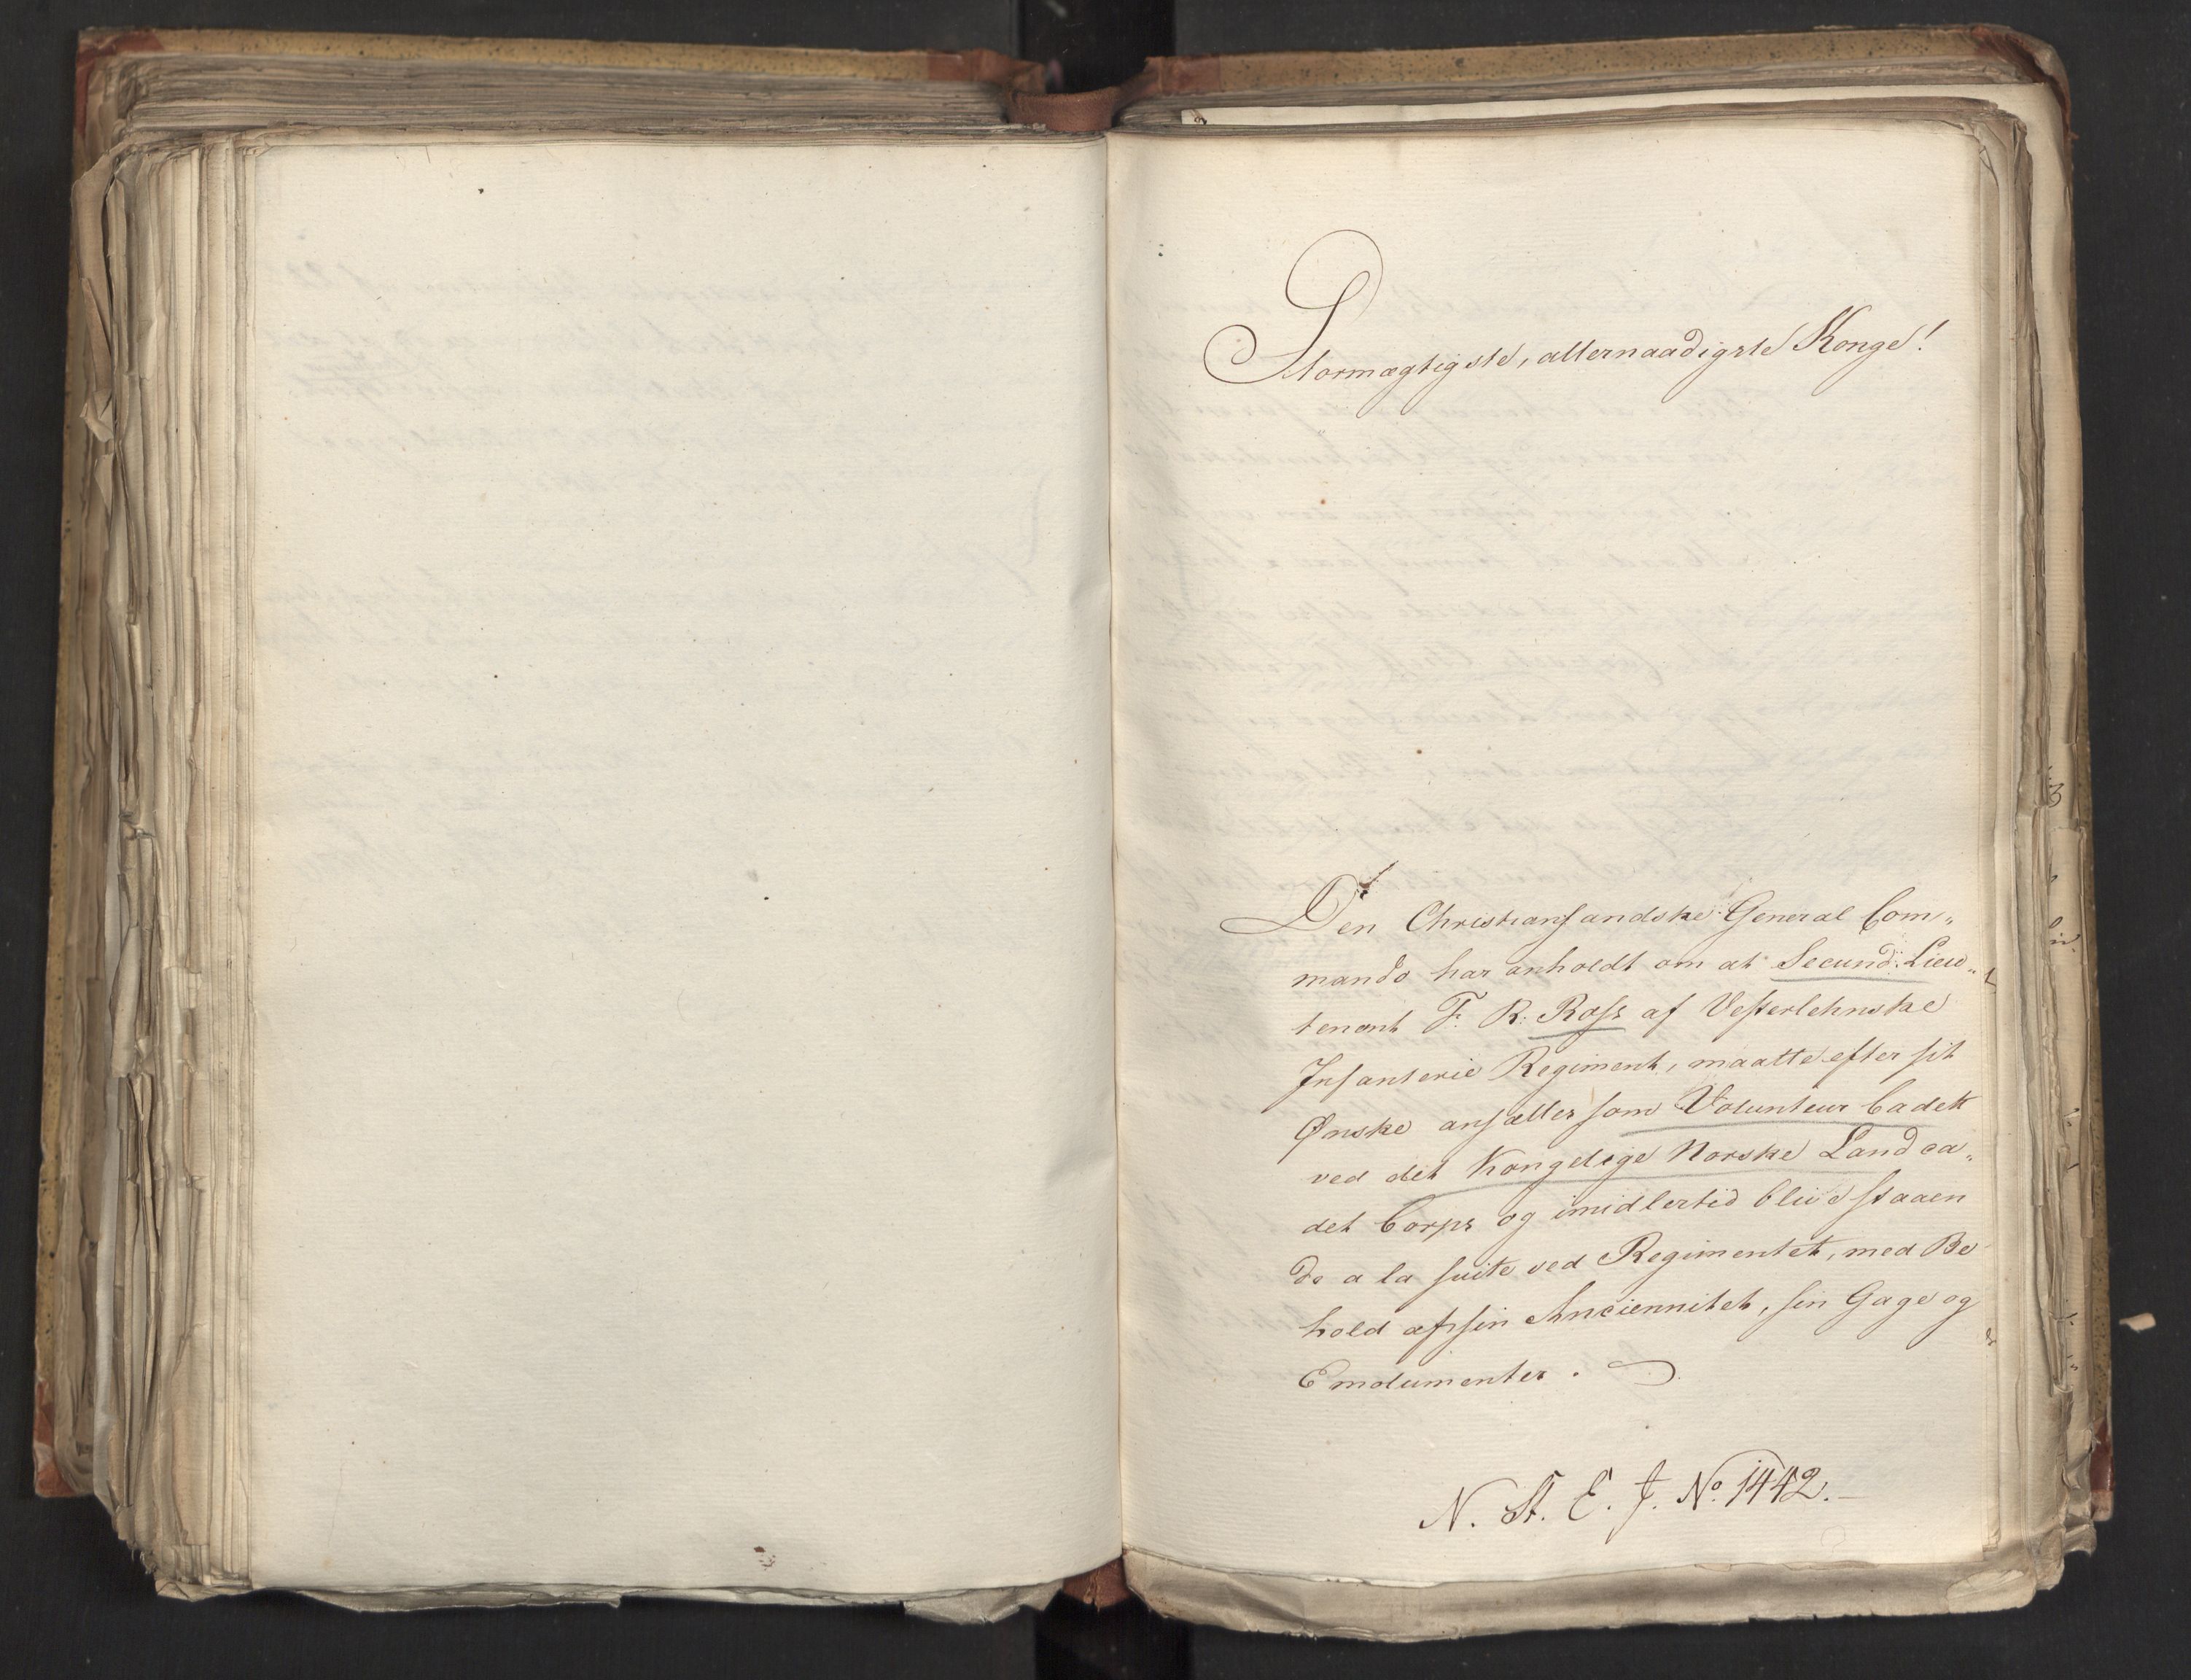 Stormægtigste, allernaadigste Konge!
Den Christiansandske General Com„
mando har anholdt om at Secund: Lieu„
tenant F: R: Ross af Vesterlehnske
Infanterie Regiment, maatte efter sit
Ønske ansættes som Volunteur Cadett
ved det Kongelige Norske Landca„
det Corps og imidlertid blive staaen
de a la suite ved Regimentet, med Be
hold af sin Anciennitet, sin Gage og
Emolumenter.
N. St. E. J. No. 1442.